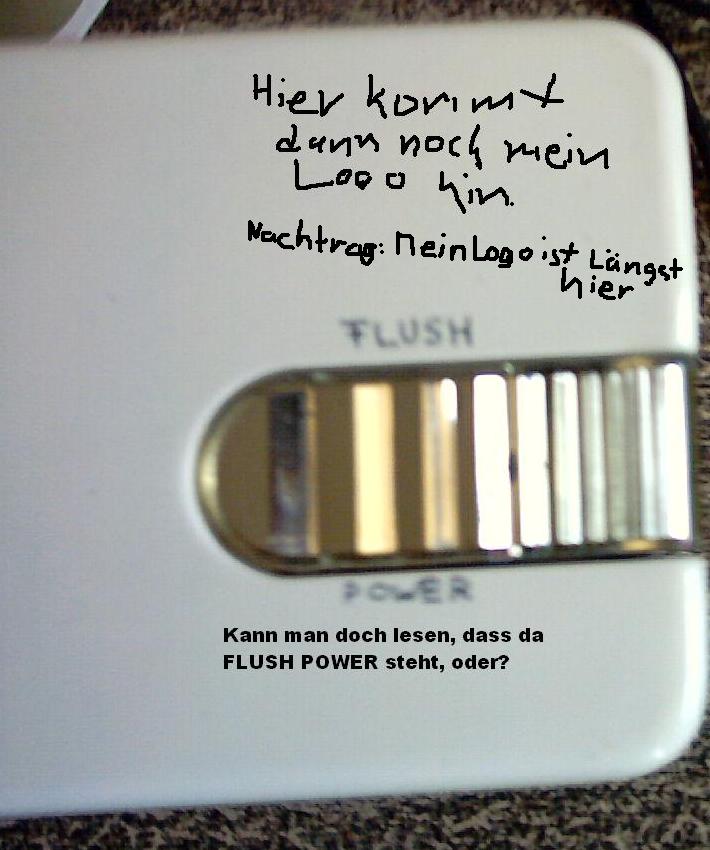 Hier kommt
dann noch mein
Logo hin.
Nachtrag: Mein Logo ist Längst
hier
FLUSH
POWER
Kann man doch lesen, dass da
FLUSH POWER steht, oder?